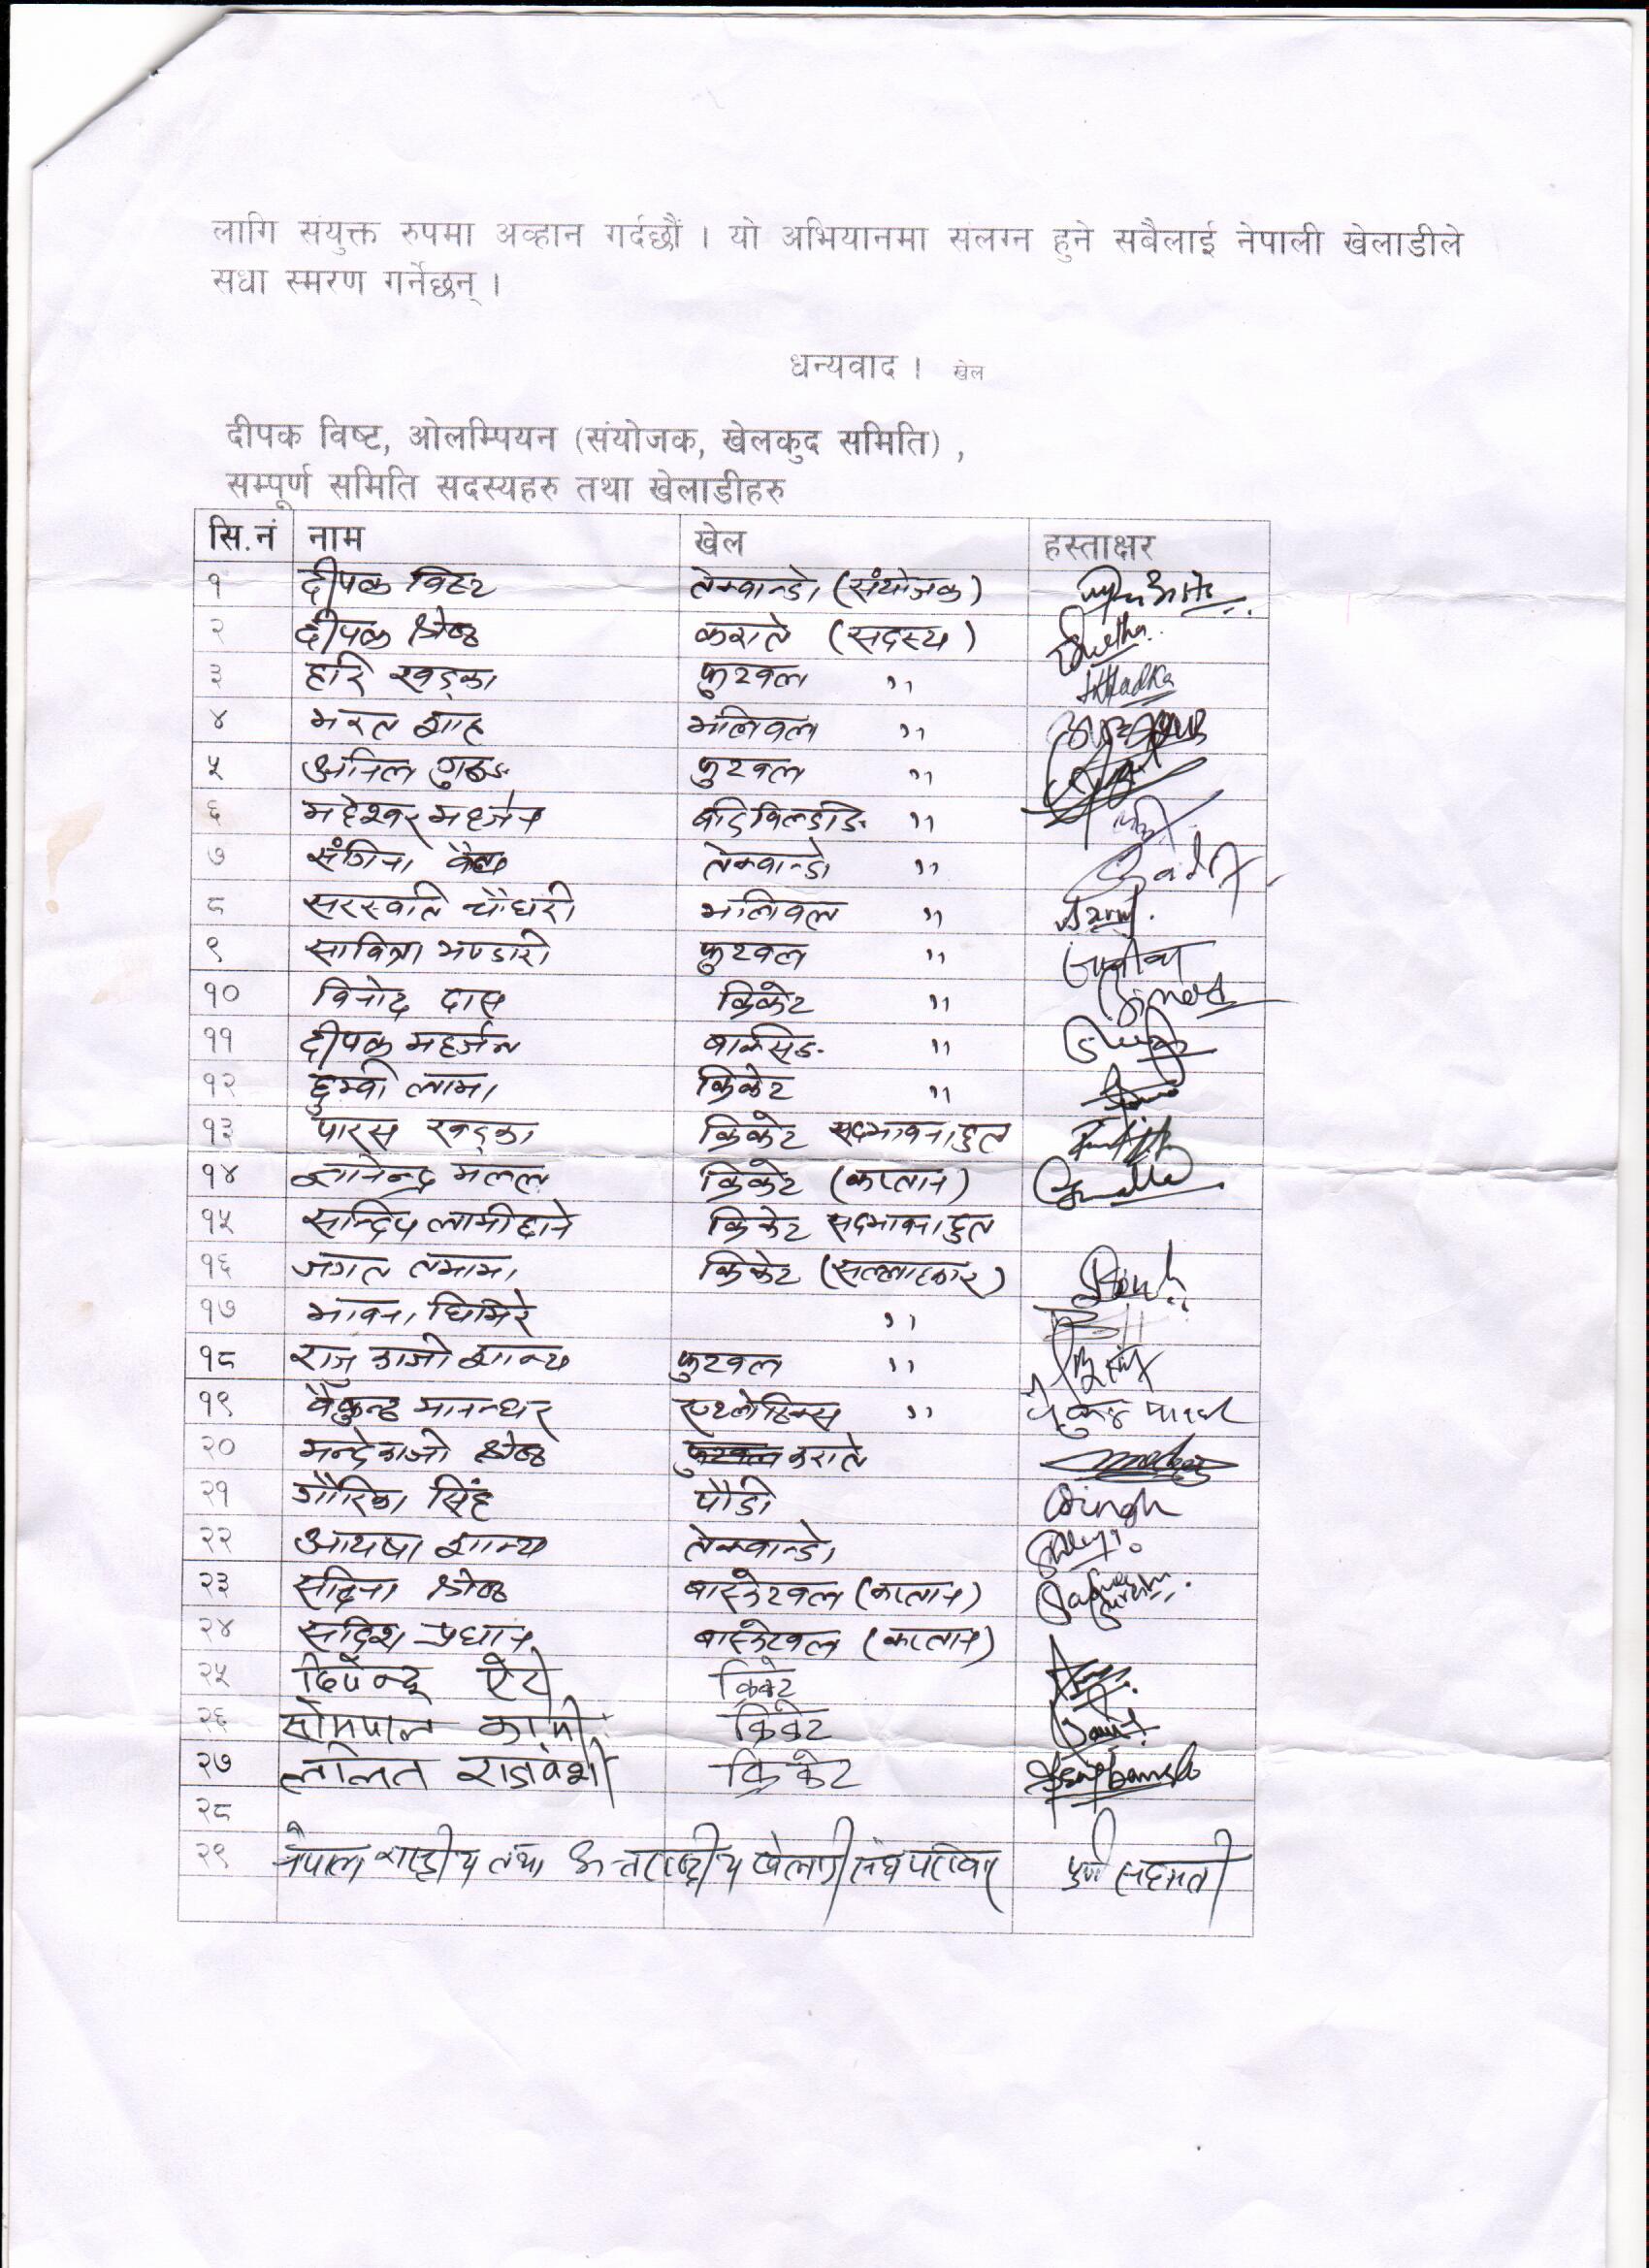 लागि संयुक्त रुपमा अव्हान गर्दछौं । यो अभियानमा संलग्न हुने सबैलाई नेपाली खेलाडीले
सधा स्मरण गर्नेछन् ।
धन्यवाद । खेल
दीपक विष्ट, ओलम्पियन (संयोजक, खेलकुद समिति) ,
सम्पूर्ण समिति सदस्यहरु तथा खेलाडीहरु
सि.नं नाम खेल हस्ताक्षर
१ दीपक विष्ट तेक्वान्दो (संयोजक)
२ दीपक श्रेष्ठ कराते (सदस्य)
३ हरि खड्का फुटवल "
४ भरत शाह भलिवल "
५ अनिल गुरुङ फुटवल "
६ महेश्वर महर्जन बडिविल्डीङ "
७ संगिना वैद्य तेक्वान्डो "
८ सरस्वति चौधरी भलिवल "
९ सावित्रा भण्डारी फुटवल "
१० विनोद दास क्रिकेट "
११ दीपक महर्जन बाक्सिङ "
१२ छुम्वी लामा क्रिकेट "
१३ पारस खड्का क्रिकेट सदभावना दुत
१४ ज्ञानेन्द्र मल्ल क्रिकेट (कप्तान)
१५ सन्दिप लामीछाने क्रिकेट सदभावना दुत
१६ जगत तमामा क्रिकेट (सल्लाहकार)
१७ भावना घिमिरे "
१८ राजु काजी शाक्य फुटवल "
१९ वैकुन्ठ मानन्धर एथ्लेटिक्स "
२० मन्देकाजी श्रेष्ठ फुटवल कराते
२१ गौरिका सिंह पौडी Singh
२२ आयषा शाक्य तेक्वान्डो
२३ सदिना श्रेष्ठ बास्केटवल (कप्तान)
२४ सदिश प्रधान बास्केटवल (कप्तान)
२५ दिपेन्द्र ऐरी क्रिकेट
२६ सोमपाल कामी क्रिकेट
२७ ललित राजवंशी क्रिकेट
२८
२९ नेपाल राष्ट्रीय तथा अन्तराष्ट्रीय खेलाडी संघ परिवार पुर्ण सहमती